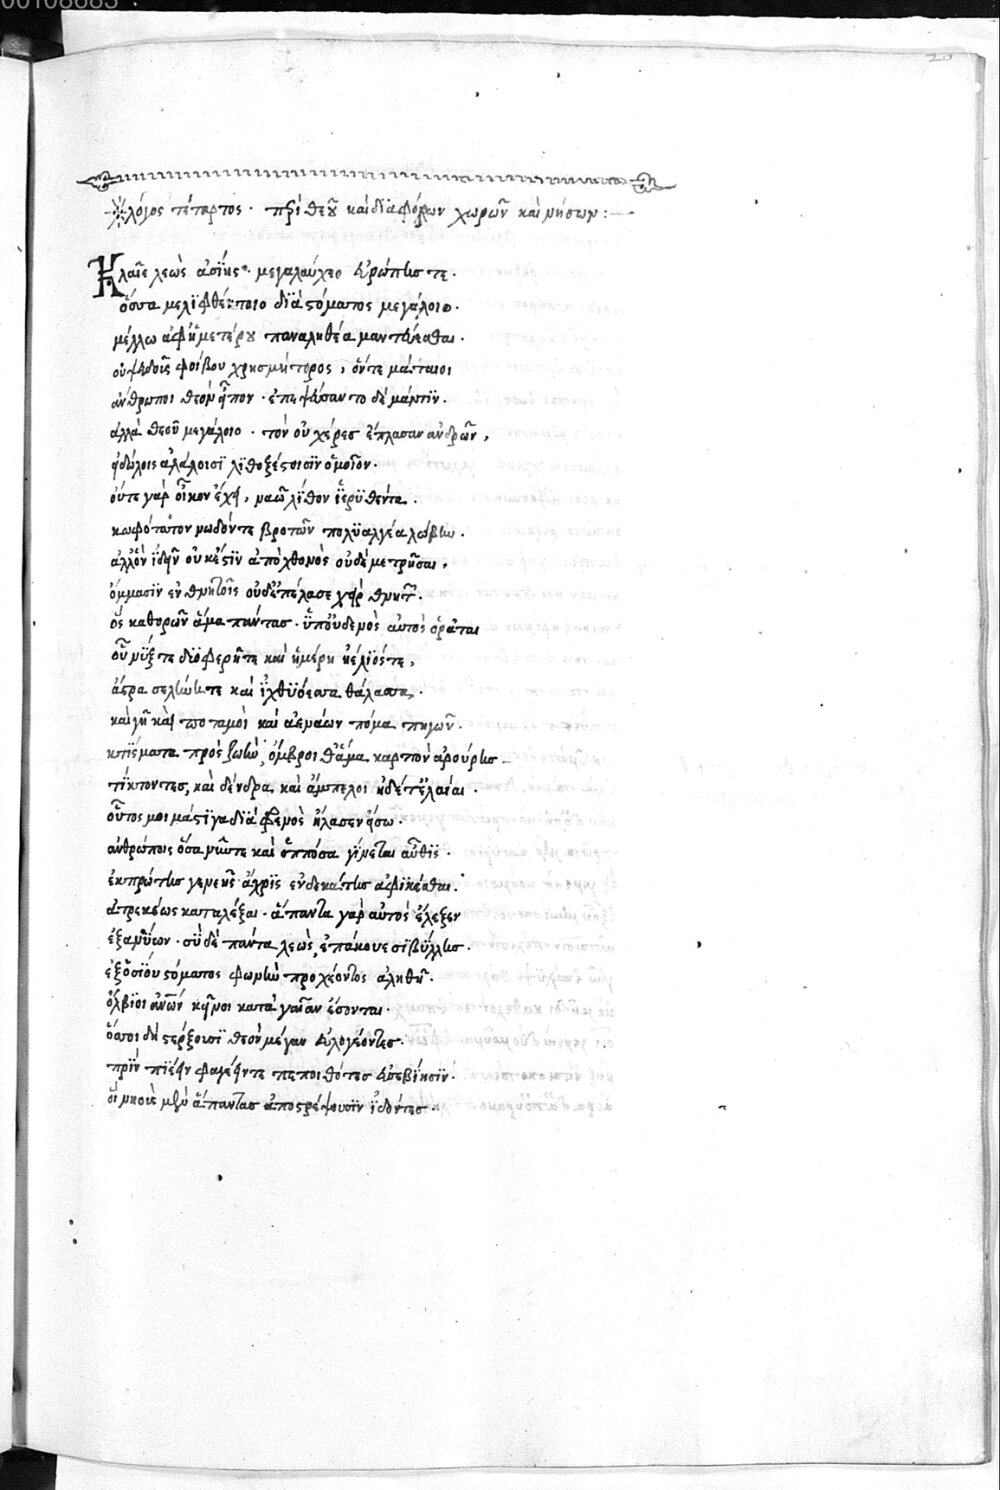 00108683
20
λόγος τέταρτος · περὶ θεοῦ καὶ διαφόρων χωρῶν καὶ νήσων :—
Κλαῖε λεὼς ἀσίης · μεγαλαύχεο εὐρώπης τε ·
ὅσσα μελιφθέγποιο διὰ στόματος μεγάλοιο ·
μέλλω ἀφ' ἡμετέρου παναληθέα μαντεύεσθαι ·
οὐ ψευδοῦς φοίβου χρησμήτορος, ὅντε μάταιοι
ἄνθρωποι θεὸν εἶπον · ἐπεψεύσαντο δὲ μάντιν ·
ἀλλὰ θεοῦ μεγάλοιο · τὸν οὐ χέρες ἔπλασαν ἀνδρῶν,
εἰδώλοις ἀλάλοισι λιθοξέστοισιν ὅμοιον ·
οὔτε γὰρ οἶκον ἔχει, ναῶ λίθον ἱδρυθέντα ·
κωφότατον νωδόν τε βροτῶν πολυαλγέα λώβην ·
ἀλλ' ὃν ἰδεῖν οὐκ ἔστιν ἀπὸ χθονὸς οὐδὲ μετρῆσαι,
ὄμμασιν ἐν θνητοῖς οὐδ' ἐπέλασε χεὶρ θνητ ·
ὃς καθορῶν ἅμα πάντας · ὑπ' οὐδενὸς αὐτὸς ὁρᾶται
οὗ νύξ τε διοφερῆ τε καὶ ἡμέρη ἠέλιός τε,
ἄστρα σελήνη τε καὶ ἰχθυόεσσα θάλασσα ·
καὶ γῆ καὶ ποταμοὶ καὶ ἀενάων στόμα πηγῶν ·
κτίσματα πρὸς ζωὴν, ὄμβροι θ' ἅμα καρπὸν ἀρούρης
τίκτοντες, καὶ δένδρα καὶ ἄμπελοι ἠδέ τ' ἐλαίαι ·
οὗτος μοι μάστιγα διὰ φρενὸς ἤλασεν εἴσω ·
ἀνθρώποις ὅσα νῦν τε καὶ ὁππόσα γίνεται αὖθις ·
ἐκ πρώτης γενεῆς ἄχρις ἐνδεκάτης ἀφικέσθαι ·
ἀτρεκέως καταλέξαι · ἅπαντα γὰρ αὐτὸς ἔλεξεν
ἐξανύων · σὺ δὲ πάντα λεὼς, ἐπάκουε σιβύλλης ·
ἐξ ὁσίου στόματος φωνὴν προχέοντος ἀληθῆ ·
ὄλβιοι ἀνων κεῖνοι κατὰ γαῖαν ἔσονται ·
ὅσσοι δὴ στέρξουσι θεὸν μέγαν εὐλογέοντες ·
πρὶν πιέειν φαγέειν τε πεποιθότες εὐσεβίῃσιν ·
οἳ νηοὺς μὲν ἅπαντας ἀποστρέψουσιν ἰδόντες ·